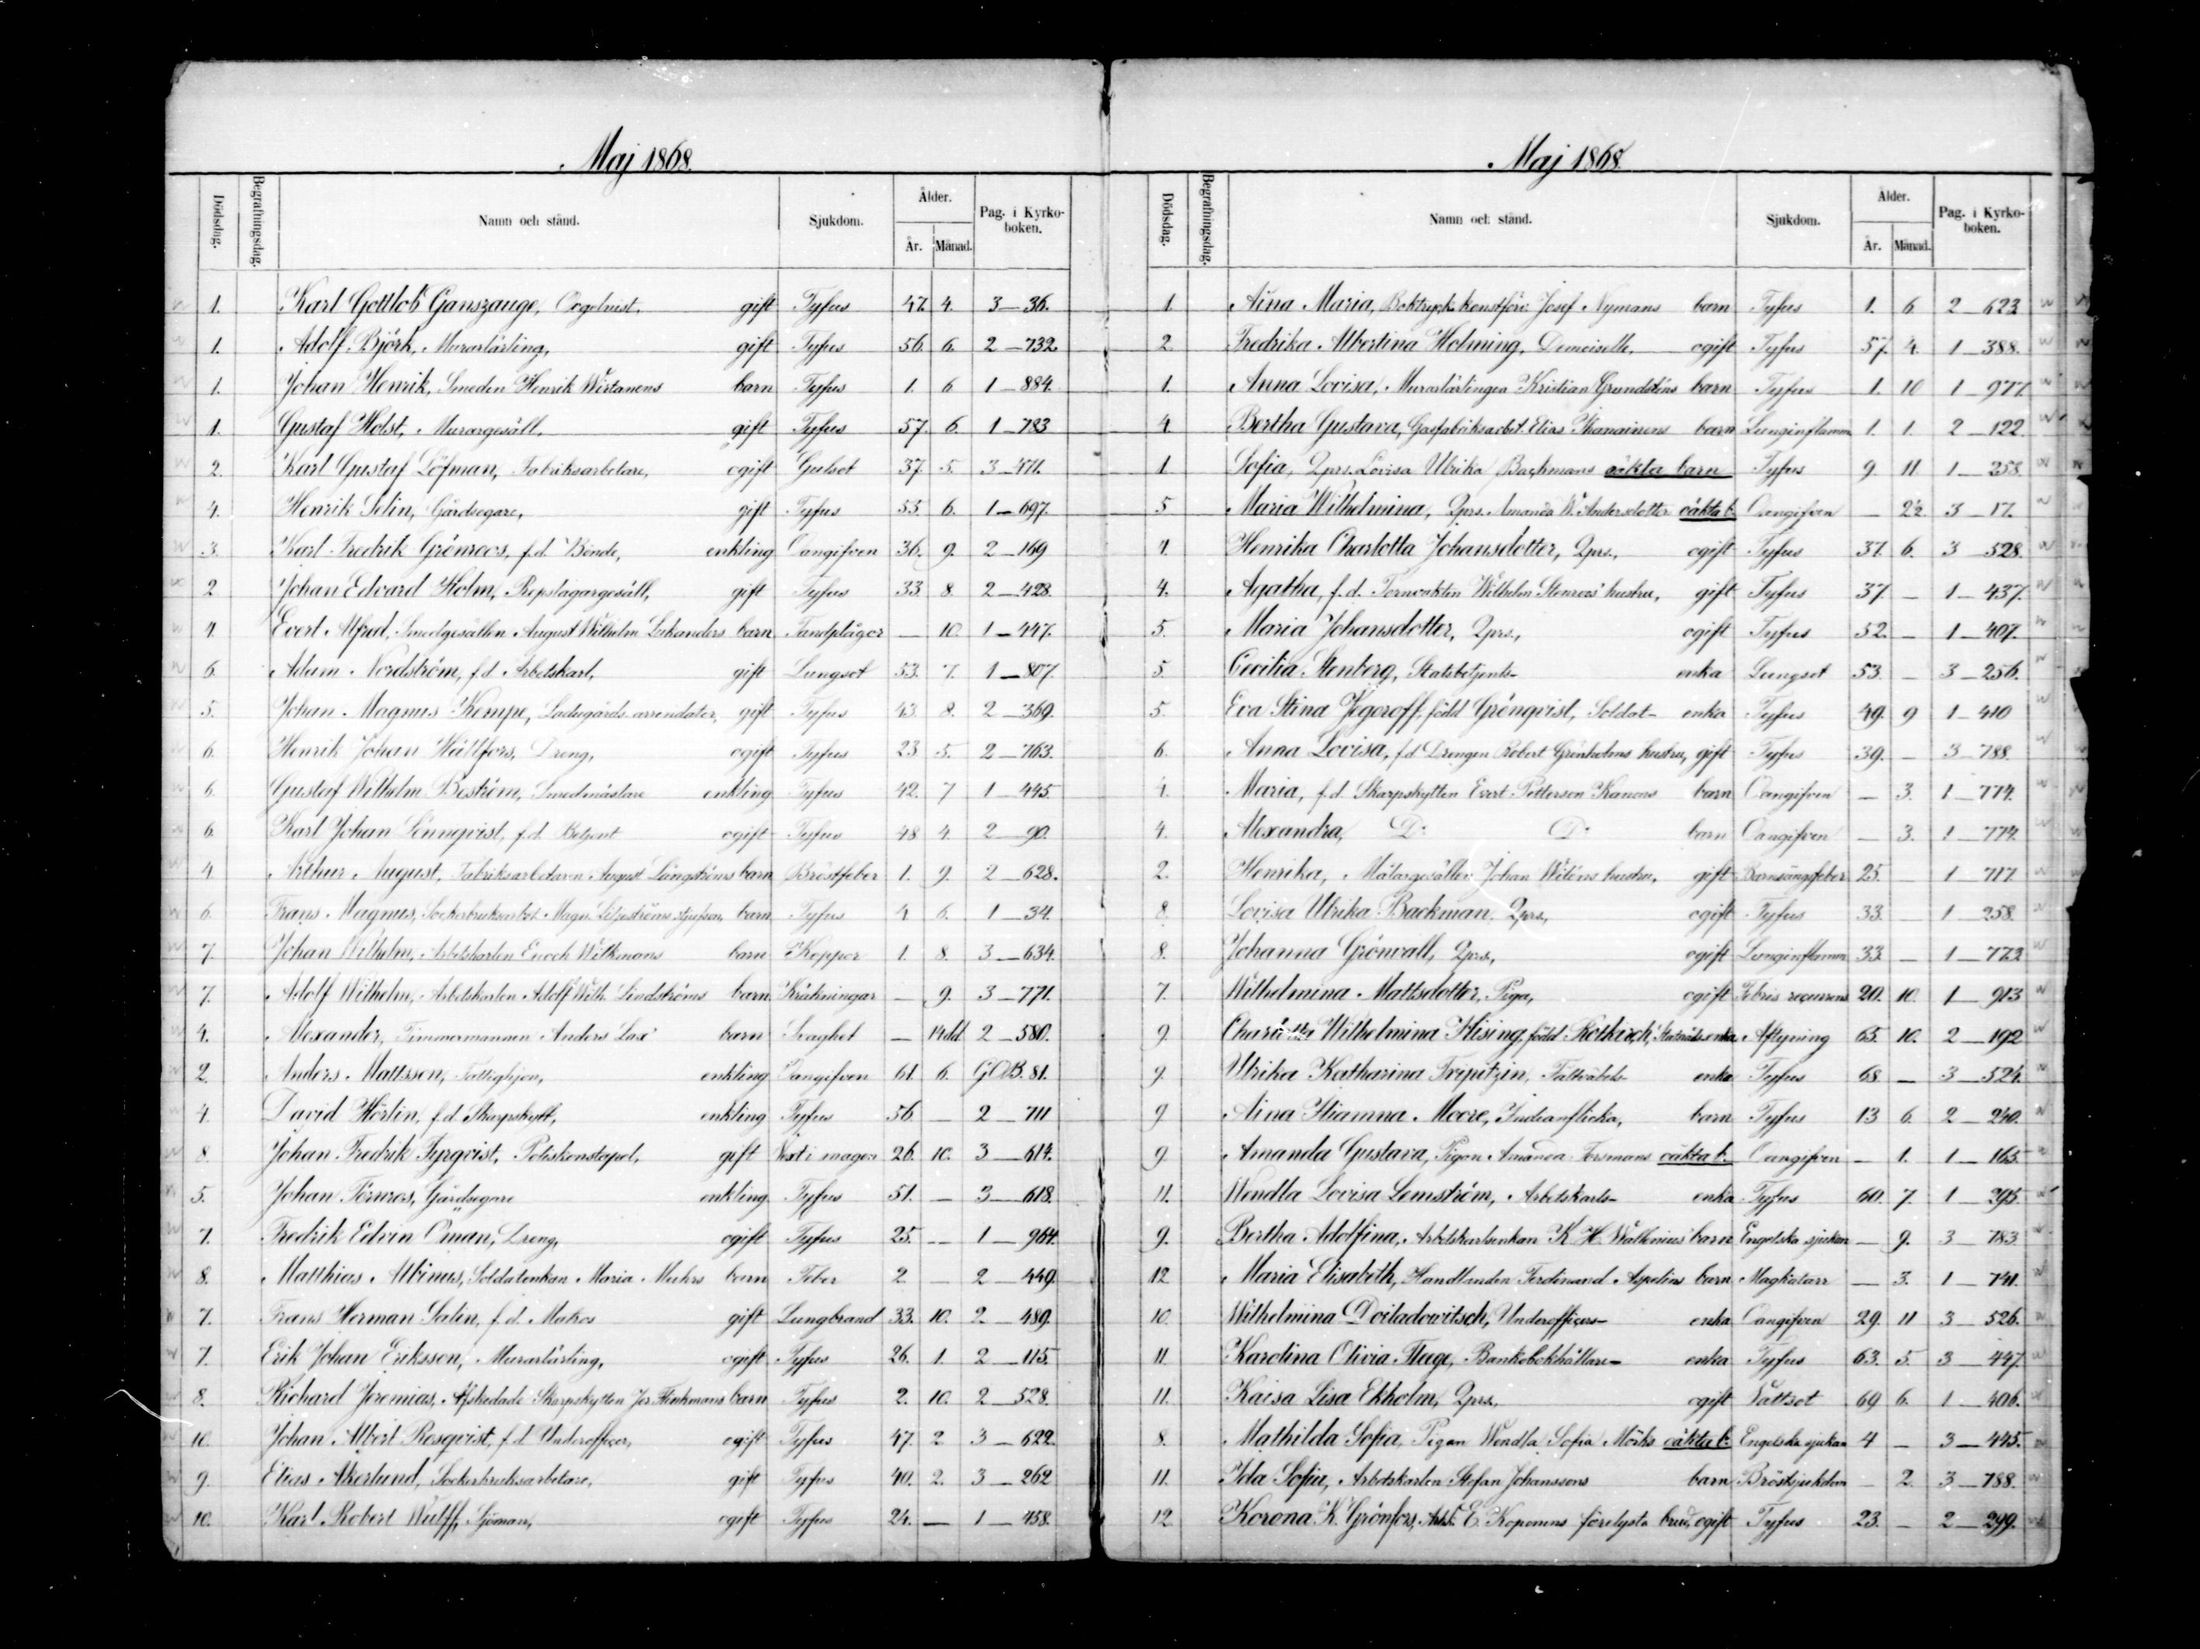 Maj 1868.
Dödsdag. Begrafningsdag. Namn och stånd. Sjukdom. Ålder. År. Månad. Pag. i Kyrkoboken.
1. Karl Gottlob Ganszauge, Orgelnist. gift Tyfus 47. 4. 3—36.
1. Adolf Björk, Murarlärling, gift Tyfus 56. 6. 2—732.
1. Johan Henrik, Smeden Henrik Wirtanens barn Tyfus 1. 6 1—884.
1. Gustaf Holst, Murargesäll, gift Tyfus 57. 6. 1—783
2. Karl Gustaf Löfman, Fabriksarbetare, ogift Gulsot 37. 5. 3—471.
4. Henrik Selin, Gårdsegare, gift Tyfus 55 6. 1—697.
3. Karl Fredrik Grönroos, f.d. Bonde, enkling Oangifven 36. 9. 2—169
2 Johan Edvard Holm, Repslagargesäll, gift Tyfus 33 8. 2—428.
4. Evert Alfred, Smedgesällen August Wilhelm Lukanders barn Tandplågor — 10. 1—447.
6. Adam Nordström, f.d. Arbetskarl, gift Lungsot 53. 7. 1—807.
5. Johan Magnus Kempe, Ladugårds arrendator, gift Tyfus 43 8. 2—369.
6. Henrik Johan Hällfors, Dreng, ogift Tyfus 23 5. 2—763.
6. Gustaf Wilhelm Boström, Smedmästare enkling Tyfus 42. 7 1—445.
6. Karl Johan Lönnqvist, f.d. Betjent ogift Tyfus 48 4. 2—90.
4 Arthur August, Fabriksarbetaren August Långströms barn Bröstfeber 1. 9. 2—628.
6. Frans Magnus, Sockerbruksarbet. Magn. Liljeströms styfson, barn Tyfus 4 6. 1—34.
7. Johan Wilhelm, Arbetskarlen Enoch Wilkmans barn Koppor 1. 8. 3—634.
7. Adolf Wilhelm, Arbetskarlen Adolf Wilh. Lindströms barn Kräkningar — 9. 3—771.
4. Alexander, Timmermannen Anders Lax' barn Svaghet — 14 dd 2—580.
2. Anders Mattsson, Fattighjon, enkling Oangifven 61. 6. G.O.B. 81.
4. David Hörlin, f.d. Skarpskytt, enkling Tyfus 56. — 2 711
8. Johan Fredrik Fyrqvist, Poliskonstapel, gift Vext i magen 26. 10. 3—614.
5. Johan Törnros, Gårdsegare enkling Tyfus 51. — 3—618.
7. Fredrik Edvin Öman, Dreng, ogift Tyfus 25. — 1—964.
8. Matthias Albinus, Soldatenkan Maria Muhrs barn Feber 2. — 2—449.
7. Frans Herman Salin, f.d. Matros gift Lungbrand 33. 10. 2—489.
7. Erik Johan Eriksson, Murarlärling, ogift Tyfus 26. 1. 2—115.
8. Richard Jeremias, Afskedade Skarpskytten Jos. Flinkmans barn Tyfus 2. 10. 2—528.
10. Johan Albert Rosqvist, f.d. Underofficer, ogift Tyfus 47. 2 3—622.
9. Elias Åkerlund, Sockerbruksarbetare, gift Tyfus 40. 2. 3—262
10. Karl Robert Wulff, Sjöman, ogift Tyfus 24. — 1—458.
Maj 1868.
Dödsdag. Begrafningsdag. Namn och stånd. Sjukdom. Ålder. År. Månad. Pag. i Kyrkoboken.
1. Aina Maria, Boktryck. konstförv. Josef Nymans barn Tyfus 1. 6 2—623
2. Fredrika Albertina Holming, Demoiselle, ogift Tyfus 57. 4. 1—388.
1. Anna Lovisa, Murarlärlingen Kristian Grundsténs barn Tyfus 1. 10 1—977.
4. Bertha Gustava, Gasfabriksarbet. Elias barn Lunginflamm. 1. 1. 2—122.
1. Sofia, Qprs. Lovisa Ulrika Backmans oäkta barn Tyfus 9. 11. 1—258.
5 Maria Wilhelmina, Qprs. Amanda W. Andersdotter oäkta b. Oangifven — 2½ 3—17.
4. Henrika Charlotta Johansdotter, Qprs., ogift Tyfus 37. 6. 3—528.
4. Agatha, f.d. Tornväktn Wilhelm Stenroos' hustru, gift Tyfus 37. — 1—437.
5. Maria Johansdotter, Qprs., ogift Tyfus 52. — 1—407.
5. Cecilia Stenberg, Statsbetjents- enka Lungsot 53. — 3—256.
5. Eva Stina Jegoroff, född Grönqvist, Soldat- enka Tyfus 49. 9 1—410
6. Anna Lovisa, f.d. Drengen Robert Grönholms hustru, gift Tyfus 39. — 3—788.
4. Maria, f.d. Skarpskytten Evert Petterson Kanons barn Oangifven — 3. 1—774.
4. Alexandra, D:o D:o barn Oangifven — 3. 1—774.
2. Henrika, Målargesällen Johan Wiléns hustru, gift Barnsängsfeber 25. 1 717.
8. Lovisa Ulrika Backman, Qprs, ogift Tyfus 33. — 1—258.
8. Johanna Grönvall, Qprs., ogift Lunginflamm 33. — 1—773
7. Wilhelmina Mattsdotter, Piga, ogift Febris recurrens 20. 10. 1—913
9. Wilhelmina Hising, född Rotkirch, Statsråds enka Aftyning 65. 10. 2—192
9. Ulrika Katharina Tripitzin, Fältväbels- enka Tyfus 68 — 3—524.
9 Aina Hianna Moore, Indianflicka, barn Tyfus 13 6. 2—240.
9 Amanda Gustava, Pigan Amanda Forsmans oäkta b. Oangifven — 1. 1—165.
11. Wendla Lovisa Lemström, Arbetskarls- enka Tyfus 60. 7. 1—295.
9. Bertha Adolfina, Arbetskarlsenkan K. H. Wallenius' barn Engelska sjukan — 9. 3—783
12. Maria Elisabeth, Handlanden Ferdinand Aspelins barn Magkatarr — 3. 1—741.
10. Wilhelmina Doiladowitsch, Underofficers- enka Oangifven 29. 11 3—526.
11. Karolina Olivia Flege, Bankobokhållare- enka Tyfus 63. 5. 3—447.
11. Kaisa Lisa Ekholm, Qprs., ogift Vattsot 69 6. 1—406.
8. Mathilda Sofia, Pigan Wendla Sofia Mörks oäkta b. Engelska sjukan 4 — 3—445.
11. Ida Sofia, Arbetskarlen Stefan Johanssons barn Bröstsjukdom — 2. 3—788.
12. Korona K. Grönfors, Arb.k. E. Koponens förelysta brud, ogift Tyfus 23. — 2—299.